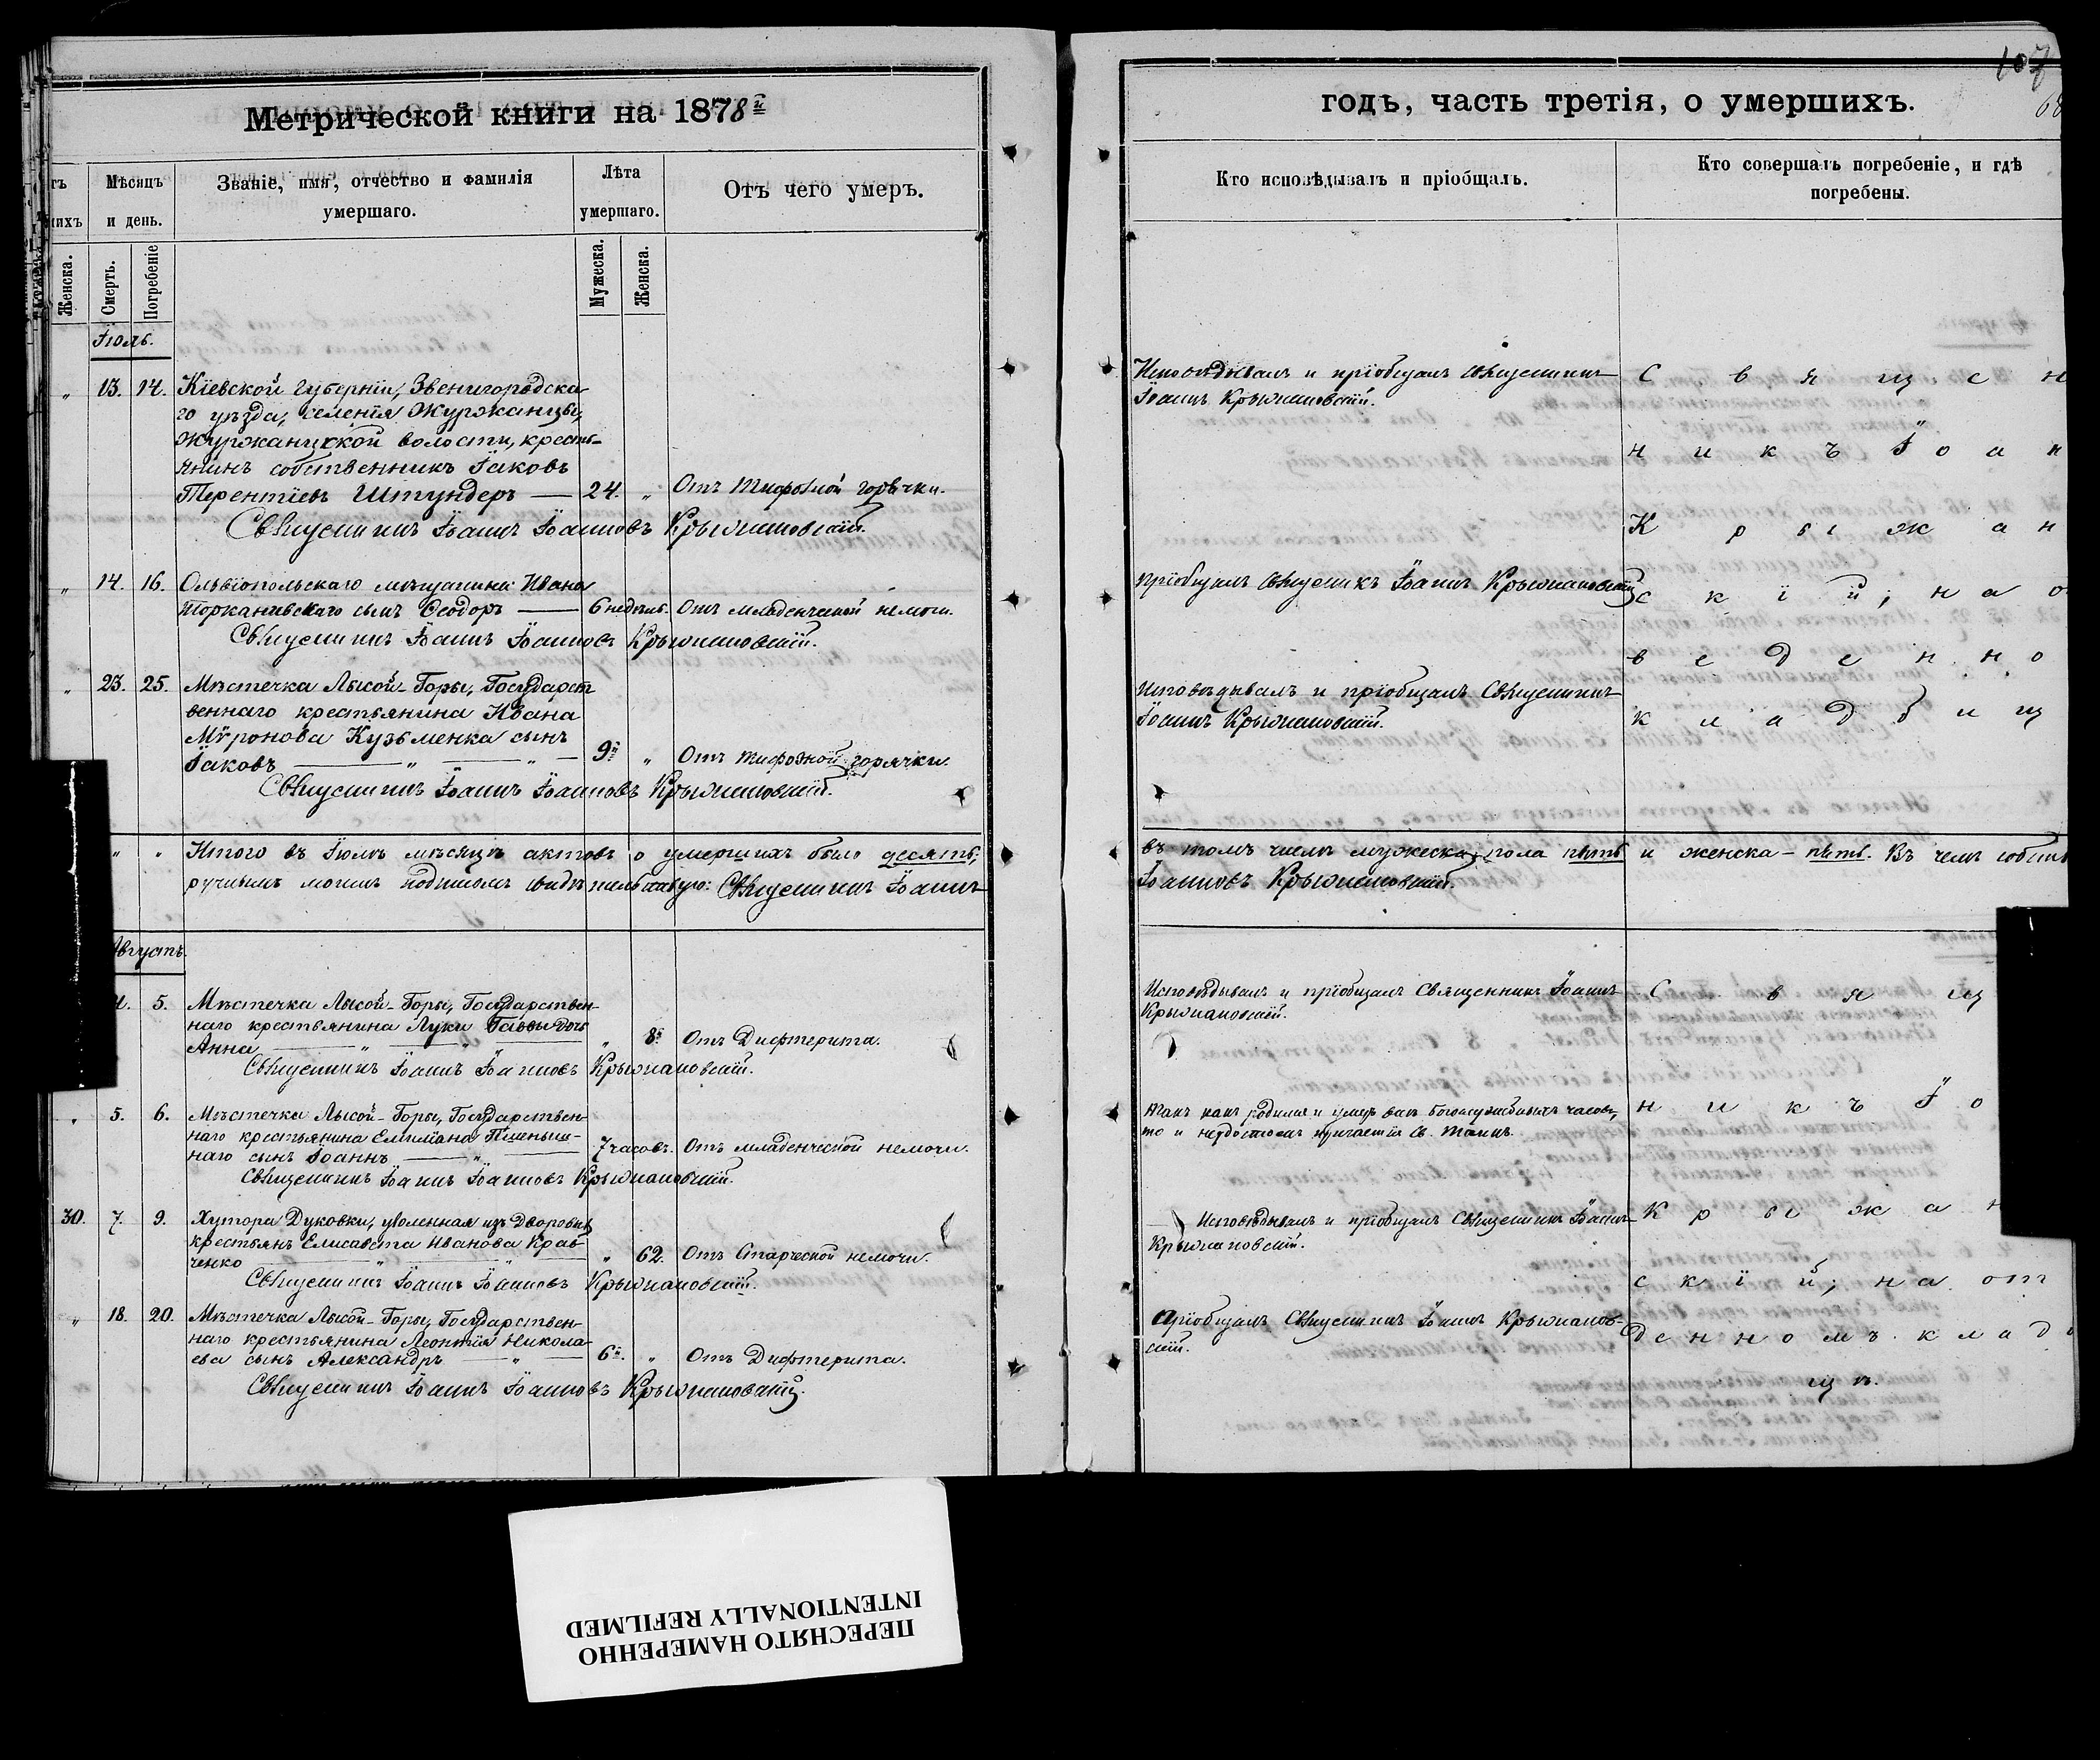 Метрической книги на 1878й
Мѣсяцъ
и день.
Званіе, имя, отчество и фамилія
умершаго.
Лѣта
умершаго.
Отъ чего умеръ.
Женска.
Смерть.
Погребеніе
Мужеска.
Женска.
Іюль.
„ 13. 14. Кіевской губерніи, Звенигородска-
го уѣзда, селенія Журжанцы,
Журжанцкой волости, кресть-
янинъ собственникъ Іаковъ
Терентіевъ Штундеръ — 24. „ Отъ тифозной горячки.
Священникъ Іоаннъ Іоанновъ Крыжановскій.
„ 14. 16. Ольвіопольскаго мѣщанина Ивана
сынъ Ѳеодоръ — 6 недѣль. Отъ младенческой немочи.
Священникъ Іоаннъ Іоанновъ Крыжановскій.
„ 23. 25. Мѣстечка Лысой-Горы, Государст
веннаго крестьянина Ивана
Мѵронова Кузьменка сынъ
Іаковъ — „ — „ — 9й „ Отъ тифозной горячки.
Священникъ Іоаннъ Іоанновъ Крыжановскій.
„ „ Итого въ Іюлѣ мѣсяцѣ актовъ о умершихъ было десять,
ручнымъ моимъ подписомъ свидѣтельствую: Священникъ Іоаннъ
Августъ.
4. 5. Мѣстечка Лысой-Горы, Государствен-
наго крестьянина Луки дочь
Анна — „ — „ — „ 8й Отъ Дифтерита.
Священникъ Іоаннъ Іоанновъ Крыжановскій.
„ 5. 6. Мѣстечка Лысой-Горы, Государствен-
наго крестьянина Емиліана Пшеныш-
наго сынъ Іоаннъ — „ — 7 часовъ. Отъ младенческой немочи.
Священникъ Іоаннъ Іоанновъ Крыжановскій.
30. 7. 9. Хутора Дуковки, уволенная изъ дворовыхъ
крестьянъ Елисавета Иванова Крав-
ченко „ 62. Отъ Старческой немочи.
Священникъ Іоаннъ Іоанновъ Крыжановскій.
„ 18. 20. Мѣстечка Лысой-Горы, Государствен-
наго крестьянина Леонтія Никола-
ева сынъ Александръ — „ — 6й. „ Отъ Дифтерита.
Священникъ Іоаннъ Іоанновъ Крыжановскій.
107
68
годъ, часть третія, о умершихъ.
Кто исповѣдывалъ и пріобщалъ.
Кто совершалъ погребеніе, и гдѣ
погребены.
Исповѣдывалъ и пріобщалъ Священникъ
Іоаннъ Крыжановскій.
Пріобщалъ Священикъ Іоаннъ Крыжановскій
Исповѣдывалъ и пріобщалъ Священникъ
Іоаннъ Крыжановскій.
С в я щ е н
н и к ъ І о а н
К р ы ж а н
с к і й; н а о
в е д е н н о
к л а д б и щ
въ томъ числѣ мужеска пола пять и женска — пять. Въ чемъ собств
Іоанновъ Крыжановскій.
Исповѣдывалъ и пріобщалъ Священникъ Іоаннъ
Крыжановскій.
такъ какъ родился и умеръ внѣ Богослужебныхъ часовъ,
то и не удостоенъ причастія Св. Таинъ.
Исповѣдывалъ и пріобщалъ Священникъ Іоаннъ
Крыжановскій.
Пріобщалъ Священникъ Іоаннъ Крыжанов-
скій.
С в я щ
н и к ъ І о
К р ы ж а н
с к і й; н а о т
д е н н о м ъ к л а д б
щ ѣ.
ПЕРЕСНЯТО НАМЕРЕННО
INTENTIONALLY REFILMED